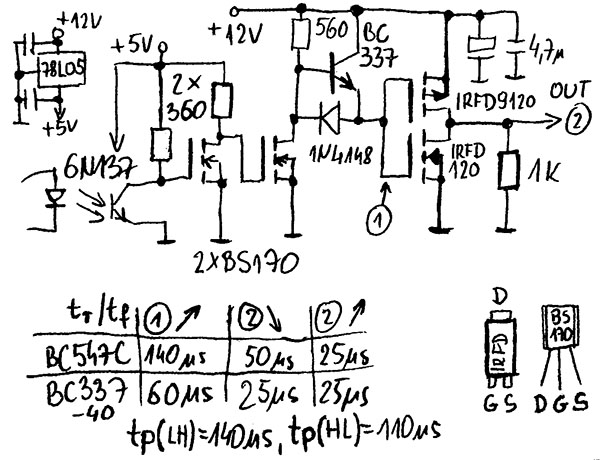 +12V
78L05
+5V
+5V
2×
360
6N137
+12V
560
BC
337
1N4148
4,7µ
IRFD9120
OUT
2
IRFD
120
1K
1
2×BS170
tr/tf 1 2 2
BC547C 140µs 50µs 25µs
BC337 60µs 25µs 25µs
-40
tp(LH)=140µs, tp(HL)=110µs
D
IRFD
G S
BS
170
D G S